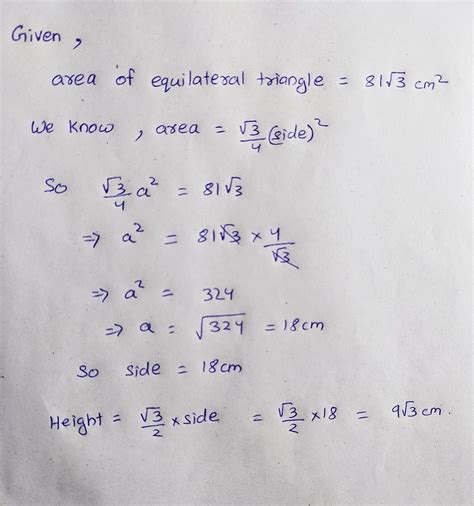 Given,
area of equilateral triangle = 81√3 cm²
We know, area = √3/4 (side)²
So √3/4 a² = 81√3
⇒ a² = 81√3 × 4/√3
⇒ a² = 324
⇒ a = √324 = 18cm
So side = 18cm
Height = √3/2 × side = √3/2 × 18 = 9√3 cm.